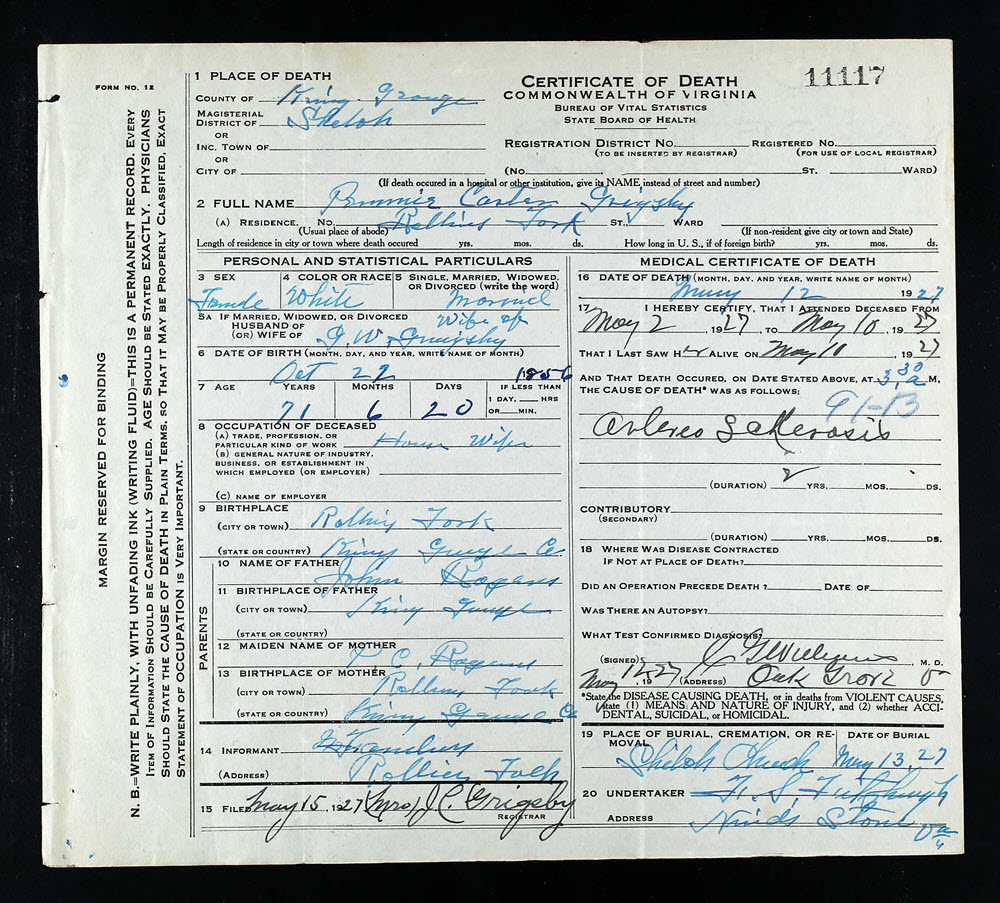 FORM NO. 12
MARGIN RESERVED FOR BINDING
N. B.=WRITE PLAINLY, WITH UNFADING INK (WRITING FLUID)=THIS IS A PERMANENT RECORD. EVERY
ITEM OF INFORMATION SHOULD BE CAREFULLY SUPPLIED. AGE SHOULD BE STATED EXACTLY. PHYSICIANS
SHOULD STATE THE CAUSE OF DEATH IN PLAIN TERMS, SO THAT IT MAY BE PROPERLY CLASSIFIED. EXACT
STATEMENT OF OCCUPATION IS VERY IMPORTANT.
11117
CERTIFICATE OF DEATH
COMMONWEALTH OF VIRGINIA
BUREAU OF VITAL STATISTICS
STATE BOARD OF HEALTH
1 PLACE OF DEATH
COUNTY OF King George
MAGISTERIAL DISTRICT OF Shiloh
OR
INC. TOWN OF
OR
CITY OF
REGISTRATION DISTRICT NO. REGISTERED NO.
(TO BE INSERTED BY REGISTRAR) (FOR USE OF LOCAL REGISTRAR)
(NO. ST. WARD)
(If death occured in a hospital or other institution, give its NAME instead of street and number)
2 FULL NAME Carter Grigsby
(A) RESIDENCE. NO. Rollins Fork ST., WARD
(Usual place of abode) (If non-resident give city or town and State)
Length of residence in city or town where death occured yrs. mos. ds. How long in U. S., if of foreign birth? yrs. mos. ds.
PERSONAL AND STATISTICAL PARTICULARS
3 SEX 4 COLOR OR RACE 5 SINGLE, MARRIED, WIDOWED, OR DIVORCED (write the word)
Female White Married
5A IF MARRIED, WIDOWED, OR DIVORCED Wife of
HUSBAND OF
(OR) WIFE OF G. W. Grigsby
6 DATE OF BIRTH (MONTH, DAY, AND YEAR, WRITE NAME OF MONTH)
Oct 22 1856
7 AGE YEARS MONTHS DAYS IF LESS THAN
1 DAY, HRS
OR MIN.
71 6 20
8 OCCUPATION OF DECEASED
(A) TRADE, PROFESSION, OR
PARTICULAR KIND OF WORK House Wife
(B) GENERAL NATURE OF INDUSTRY,
BUSINESS, OR ESTABLISHMENT IN
WHICH EMPLOYED (OR EMPLOYER)
(C) NAME OF EMPLOYER
9 BIRTHPLACE
(CITY OR TOWN) Rollins Fork
(STATE OR COUNTRY) King George Co.
PARENTS
10 NAME OF FATHER
John
11 BIRTHPLACE OF FATHER
(CITY OR TOWN) King George
(STATE OR COUNTRY)
12 MAIDEN NAME OF MOTHER
13 BIRTHPLACE OF MOTHER
(CITY OR TOWN) Rollins Fork
(STATE OR COUNTRY) King George Co
14 INFORMANT
(ADDRESS) Rollins Fork
15 FILED May 15, 1927 Mrs J. C. Grigsby
REGISTRAR
MEDICAL CERTIFICATE OF DEATH
16 DATE OF DEATH (MONTH, DAY, AND YEAR, WRITE NAME OF MONTH)
May 12 1927
17 I HEREBY CERTIFY, THAT I ATTENDED DECEASED FROM
May 2, 1927, TO May 10, 1927
THAT I LAST SAW Her ALIVE ON May 10, 1927
AND THAT DEATH OCCURED, ON DATE STATED ABOVE, AT 3,30 a M,
THE CAUSE OF DEATH* WAS AS FOLLOWS;
91-B
(DURATION) 2 YRS. MOS. DS.
CONTRIBUTORY
(SECONDARY)
(DURATION) YRS. MOS. DS.
18 WHERE WAS DISEASE CONTRACTED
IF NOT AT PLACE OF DEATH?
DID AN OPERATION PRECEDE DEATH? DATE OF
WAS THERE AN AUTOPSY?
WHAT TEST CONFIRMED DIAGNOSIS?
(SIGNED) M. D.
May 12, 1927 (ADDRESS) Oak Grove
*State the DISEASE CAUSING DEATH, or in deaths from VIOLENT CAUSES,
state (1) MEANS AND NATURE OF INJURY, and (2) whether ACCI-
DENTAL, SUICIDAL, or HOMICIDAL.
19 PLACE OF BURIAL, CREMATION, OR RE- DATE OF BURIAL
MOVAL
Shiloh Church May 13, 27
20 UNDERTAKER F. S. Fitzhugh
ADDRESS Stone Va